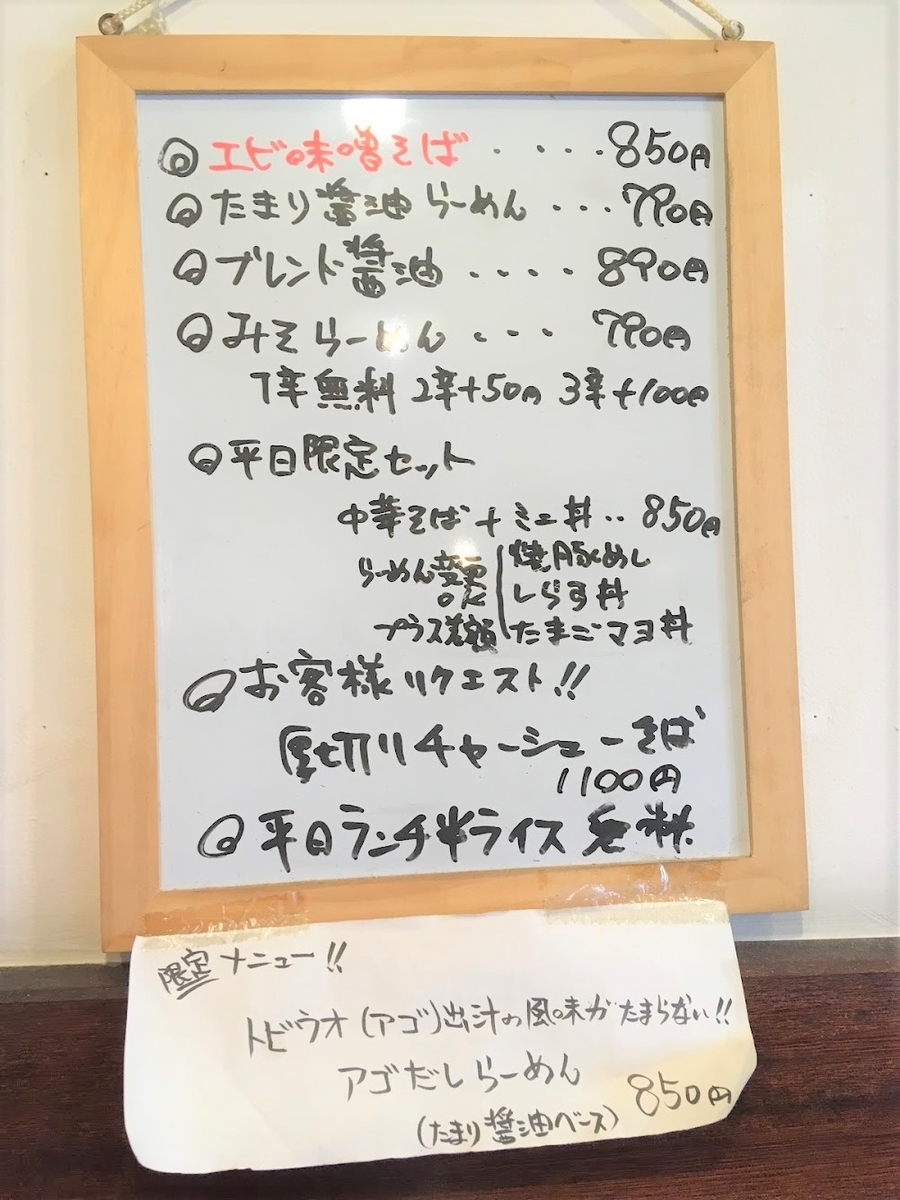 ◎エビ味噌そば ・・・・ 850円
◎たまり醤油らーめん ・・・ 790円
◎ブレンド醤油 ・・・・ 890円
◎みそらーめん ・・・ 790円
1辛無料 2辛+50円 3辛+100円
◎平日限定セット
中華そば+ミニ丼‥850円
らーめん変更OK 焼豚めし
しらす丼
プラス差額 たまごマヨ丼
◎お客様リクエスト!!
厚切りチャーシューそば
1100円
◎平日ランチ半ライス無料
限定メニュー!!
トビウオ(アゴ)出汁の風味がたまらない!!
アゴだしらーめん
850円
(たまり醤油ベース)